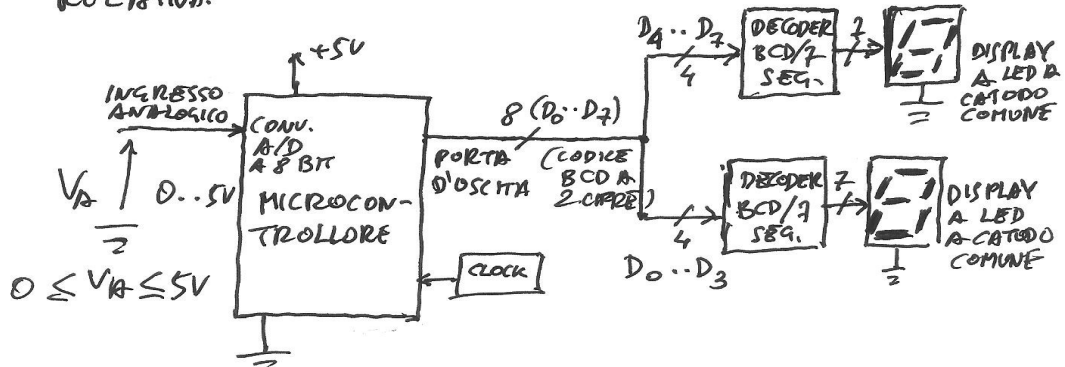 +5V
INGRESSO
ANALOGICO
CONV.
A/D
A 8 BIT
MICROCON-
TROLLORE
VA
0..5V
0 ≤ VA ≤ 5V
CLOCK
8 (D0..D7)
PORTA
D'USCITA
(CODICE
BCD A
2 CIFRE)
D4..D7
4
DECODER
BCD/7
SEG.
7
DISPLAY
A LED A
CATODO
COMUNE
4
D0..D3
DECODER
BCD/7
SEG.
7
DISPLAY
A LED
A CATODO
COMUNE